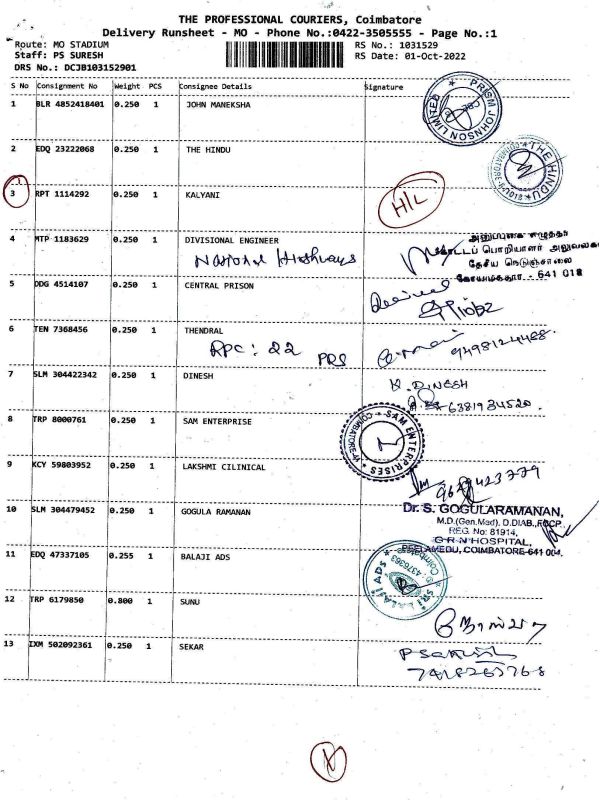 THE PROFESSIONAL COURIERS, Coimbatore
Delivery Runsheet - MO - Phone No.:0422-3505555 - Page No.:1
Route: MO STADIUM
RS No.: 1031529
Staff: PS SURESH
RS Date: 01-Oct-2022
DRS No.: DCJB103152901
S No Consignment No Weight PCS Consignee Details Signature
1 BLR 4852418401 0.250 1 JOHN MANEKSHA
PRISM JOHNSON LIMITED
CBE
2 EDQ 23222068 0.250 1 THE HINDU
THE HINDU
COIMBATORE
3 RPT 1114292 0.250 1 KALYANI
H/L
4 MTP 1183629 0.250 1 DIVISIONAL ENGINEER
National Highways
கோட்டப் பொறியாளர் அலுவலகம்
தேசிய நெடுஞ்சாலை
641 018
5 DDG 4514107 0.250 1 CENTRAL PRISON
6 TEN 7368456 0.250 1 THENDRAL
RPC: 22 PRS
7 SLM 304422342 0.250 1 DINESH
K. DINESH
6381934520.
8 TRP 8000761 0.250 1 SAM ENTERPRISE
SAM ENTERPRISES
COIMBATORE
9 KCY 59803952 0.250 1 LAKSHMI CILINICAL
10 SLM 304479452 0.250 1 GOGULA RAMANAN
Dr. S. GOGULARAMANAN,
M.D.(Gen.Med), D.DIAB., FCCP
REG. No: 81914,
G R N HOSPITAL,
PEELAMEDU, COIMBATORE-641 004.
11 EDQ 47337105 0.255 1 BALAJI ADS
SRI BALAJI ADS
Coimbatore
4376363
12 TRP 6179850 0.800 1 SUNU
13 IXM 502092361 0.250 1 SEKAR